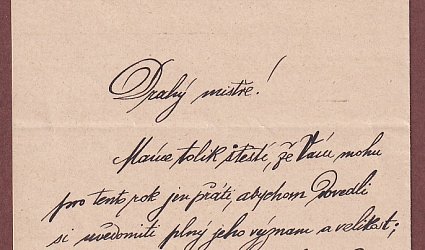 Drahý mistře!
Máme tolik štěstí, že Vám mohu
pro tento rok jen přáti, abychom dovedli
si uvědomiti plný jeho význam a velikost;